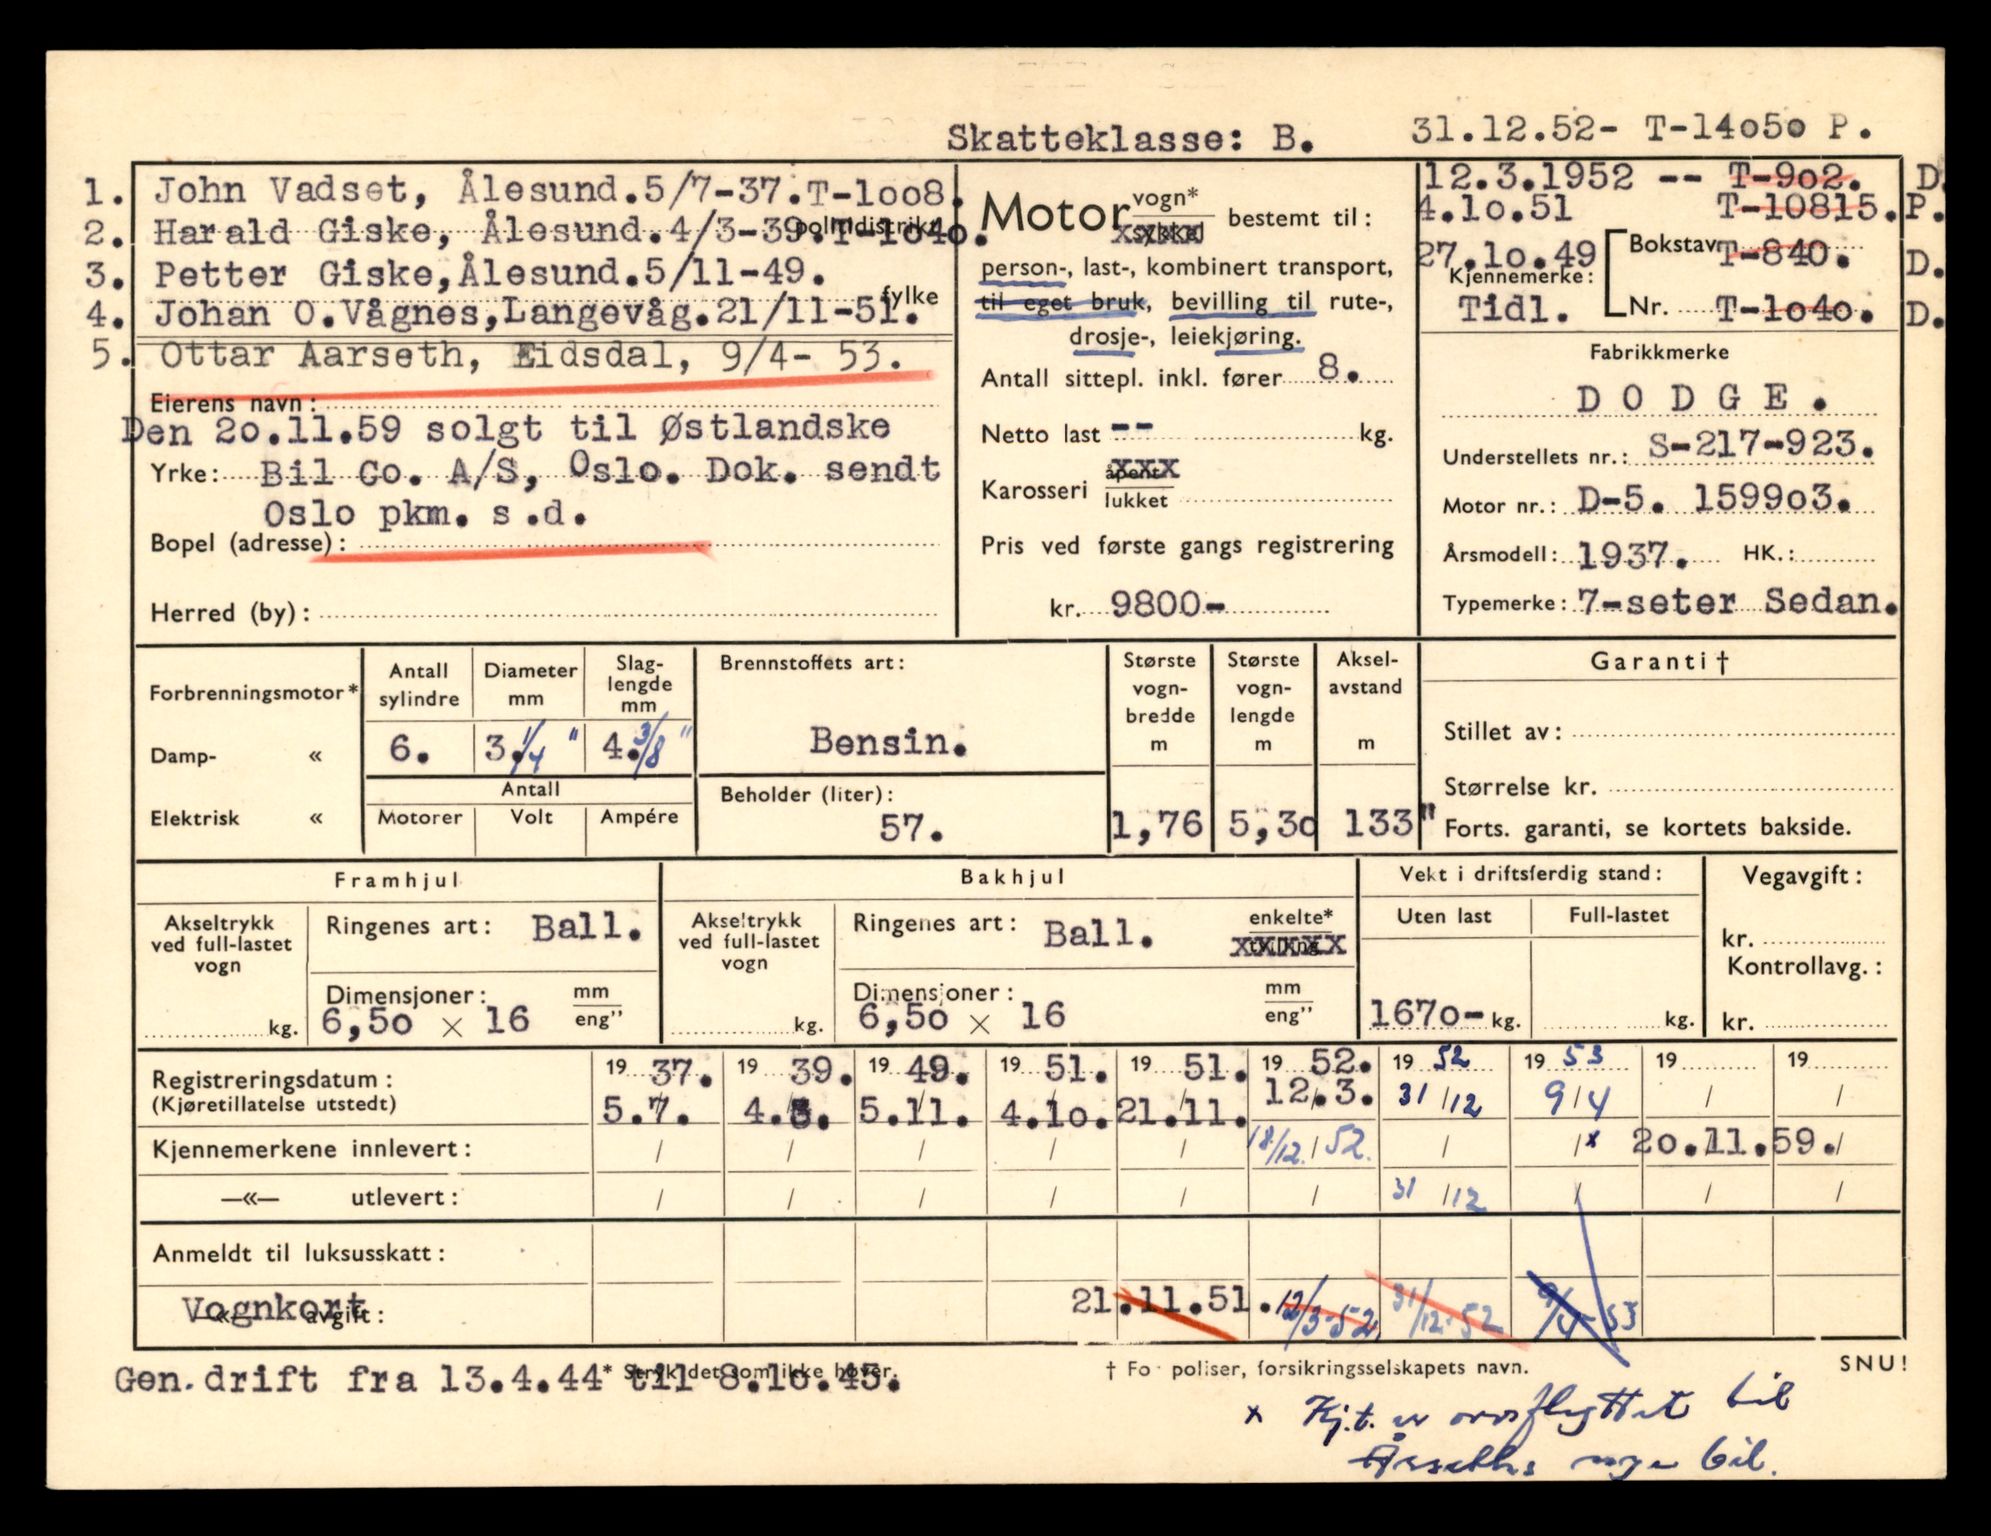 Skatteklasse: B. 31.12.52- T-14050 P.
1. John Vadset, Ålesund.5/7-37.T-1008.
2. Harald Giske, Ålesund.4/3-39.T-1040.
politidistrikt
3. Petter Giske,Ålesund.5/11-49.
fylke
4. Johan O.Vågnes,Langevåg.21/11-51.
5. Ottar Aarseth, Eidsdal, 9/4- 53.
Eierens navn:
Den 20.11.59 solgt til Østlandske
Yrke: Bil Co. A/S, Oslo. Dok. sendt
Oslo pkm. s.d.
Bopel (adresse):
Herred (by):
Motor vogn* sykkel bestemt til:
person-, last-, kombinert transport,
til eget bruk, bevilling til rute-,
drosje-, leiekjøring.
Antall sittepl. inkl. fører 8.
Netto last -- kg.
Karosseri åpent lukket
Pris ved første gangs registrering
kr. 9800-
12.3.1952 -- T-902. D.
4.10.51 T-10815. P.
27.10.49 Bokstav T-840. D.
Kjennemerke:
Tidl. Nr. T-1040. D.
Fabrikkmerke
DODGE.
Understellets nr.: S-217-923.
Motor nr.: D-5. 159903.
Årsmodell: 1937. HK.:
Typemerke: 7-seter Sedan.
Forbrenningsmotor*
Damp- «
Elektrisk «
Antall sylindre Diameter mm Slag-lengde mm
6. 3.1/4" 4.3/8"
Antall
Motorer Volt Ampére
Brennstoffets art:
Bensin.
Beholder (liter):
57.
Største vogn-bredde m Største vogn-lengde m Aksel-avstand m
1,76 5,30 133"
Garanti †
Stillet av:
Størrelse kr.
Forts. garanti, se kortets bakside.
Framhjul
Akseltrykk ved full-lastet vogn
kg.
Ringenes art: Ball.
Dimensjoner: mm eng"
6,50 x 16
Bakhjul
Akseltrykk ved full-lastet vogn
kg.
Ringenes art: Ball. enkelte* tvilling
Dimensjoner: mm eng"
6,50 x 16
Vekt i driftsferdig stand:
Uten last Full-lastet
1670- kg. kg.
Vegavgift:
kr.
Kontrollavg.:
kr.
19 37. 19 39. 19 49. 19 51. 19 51. 19 52. 19 52 19 53 19 19
Registreringsdatum:
(Kjøretillatelse utstedt) 5.7. 4.3. 5.11. 4.10. 21.11. 12.3. 31/12 9/4 / /
Kjennemerkene innlevert: / / / / / 18/12.52. / /x 20.11.59. /
—«— utlevert: / / / / / / 31/12 / / /
Anmeldt til luksusskatt:
Vognkort —«— avgift: 21.11.51. 12/3-52 31/12-52 9/4-53
Gen.drift fra 13.4.44 til 8.10.45.
* Stryk det som ikke høver.
† For poliser, forsikringsselskapets navn.
SNU!
x Kj.t. er overflyttet til
Årseths nye bil.